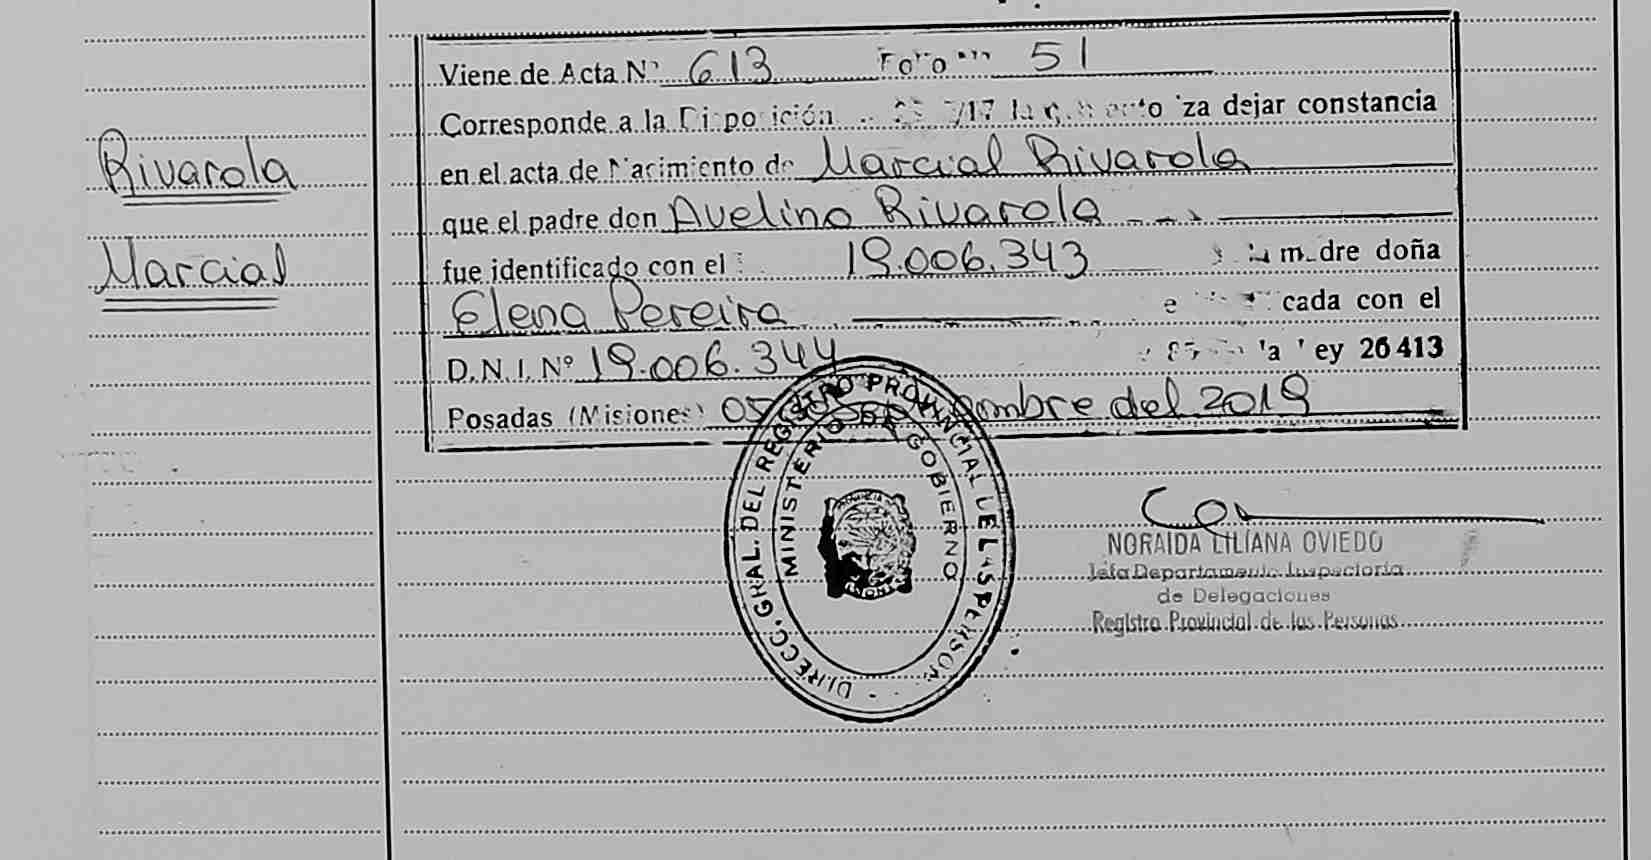 Rivarola
Marcial
Viene de Acta Nº 613 51
Corresponde a la dejar constancia
en el acta de Nacimiento de Marcial Rivarola
que el padre don Avelino Rivarola
fue identificado con el 19.006.343 doña
Elena Pereira con el
D.N.I. Nº 19.006.344 26413
Posadas (Misiones) 05 del 2019
DIRECC. GRAL. DEL REGISTRO PROVINCIAL DE LAS
MINISTERIO DE GOBIERNO
NORAIDA LILIANA OVIEDO
Jefa Departamento Inspectoria
de Delegaciones
Registro Provincial de las Personas